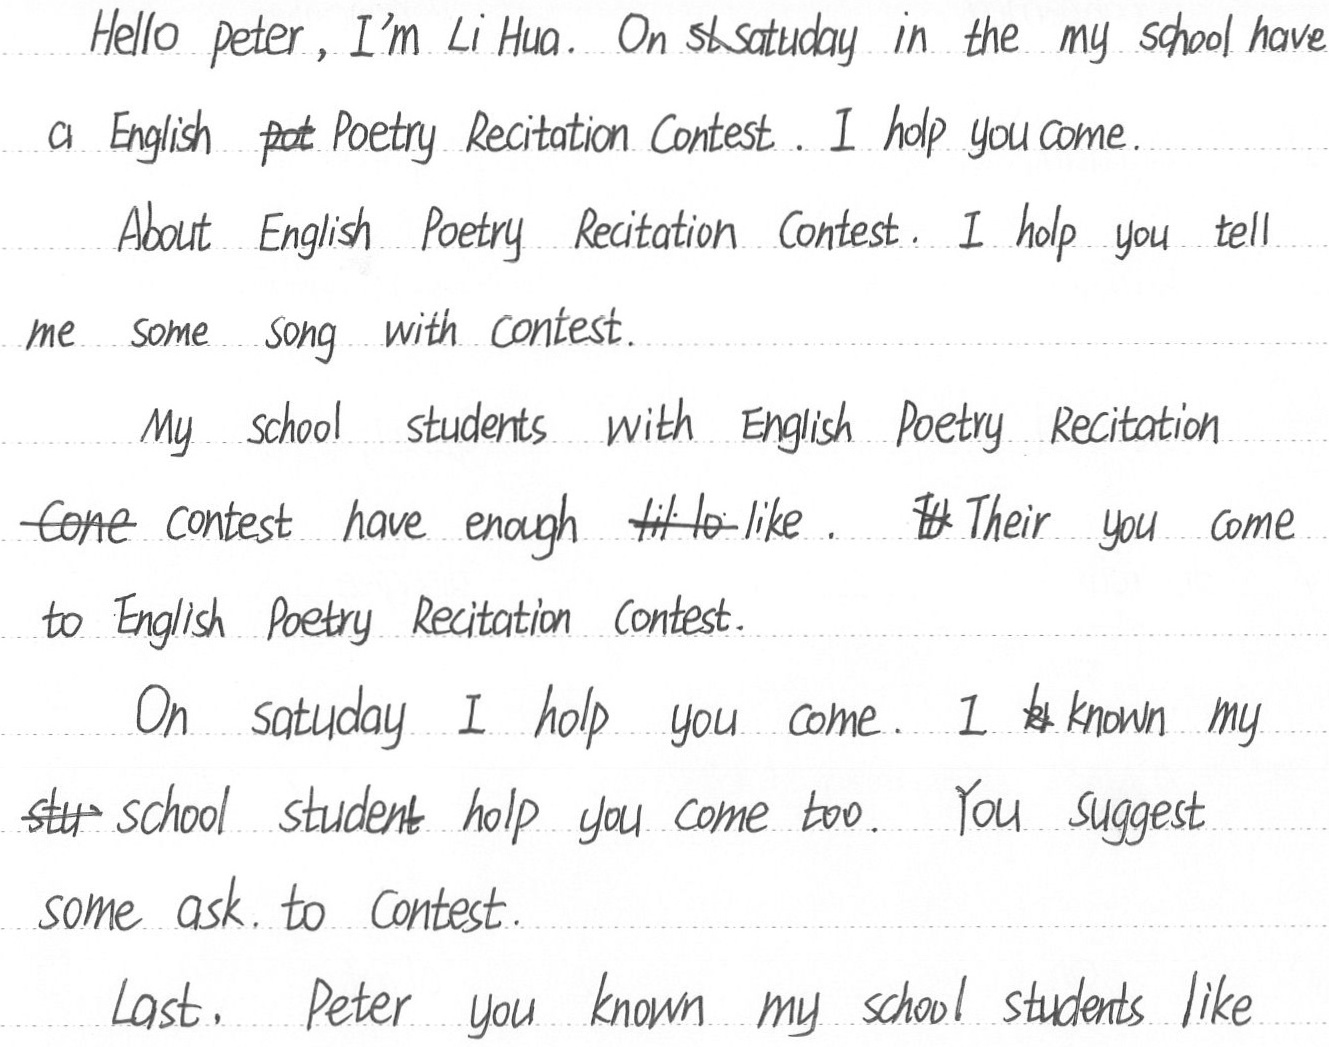 Hello peter, I'm Li Hua. On satuday in the my school have
a English Poetry Recitation Contest. I holp you come.
About English Poetry Recitation Contest. I holp you tell
me some song with contest.
My school students with English Poetry Recitation
contest have enough like. Their you come
to English Poetry Recitation Contest.
On satuday I holp you come. I known my
school student holp you come too. You suggest
some ask. to Contest.
Last. Peter you known my school students like